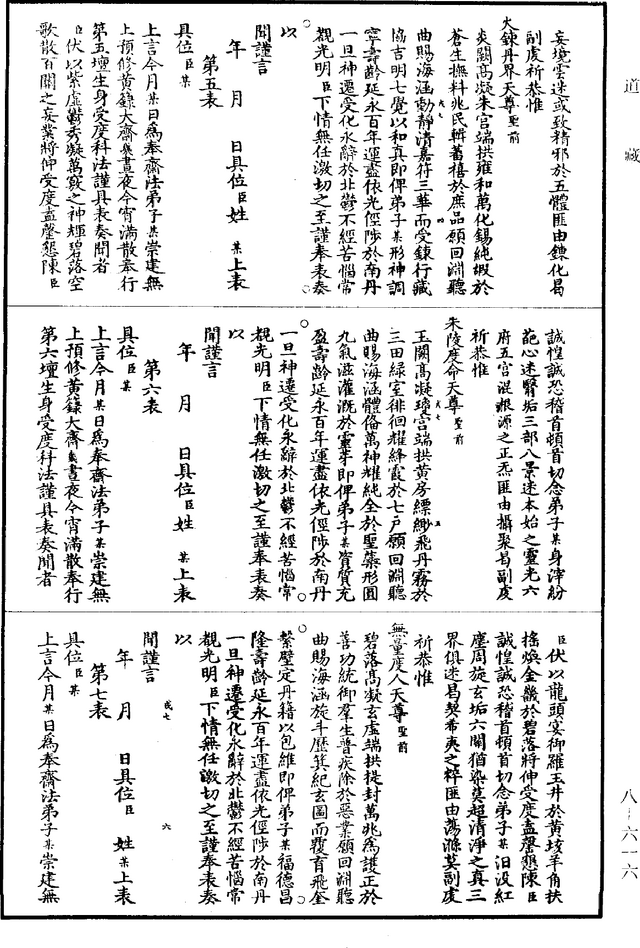 道藏
妄境雲迷或致精邪於五體匪由鍊化曷
副虔祈恭惟
火鍊丹界天尊聖前
炎闕高凝朱宮端拱雍和萬化錫純嘏於
蒼生撫科兆民輯蕃禧於庶品願回淵聽
曲賜海涵動靜清嘉符三華而受鍊行藏
協吉明七覺以和真即俾弟子某形神調
寧壽齡延永百年運盡依光徑陟於南丹
一旦神遷受化永辭於北鬱不經苦惱常
觀光明臣下情無任激切之至謹奉表奏
以
聞謹言
年 月 日具位臣姓 某上表
第五表
具位臣某
上言今月某日為奉齋法弟子某崇建無
上預修黃籙大齋幾晝夜今宵滿散奉行
第五壇生身受度科法謹具表奏聞者
臣伏以紫虛鬱秀凝萬竅之神輝碧落空
歌散百關之妄業將伸受度盍罄懇陳臣
誠惶誠恐稽首頓首切念弟子某身滓紛
葩心迷腎垢三部八景迷本始之靈光六
府五宮混根源之正炁匪由攝聚曷副虔
祈恭惟
朱陵度命天尊聖前
玉闕高凝瓊宮端拱黃房縹緲飛丹霧於
三田綠室徘徊耀絳霞於七戶願回淵聽
曲賜海涵體備萬神耀純全於聖藥形圓
九氣滋灌溉於靈芽即俾弟子某資質充
盈壽齡延永百年運盡依光徑陟於南丹
一旦神遷受化永辭於北鬱不經苦惱常
覩光明臣下情無任激切之至謹奉表奏
以
聞謹言
年 月 日具位臣姓 某上表
第六表
具位臣某
上言今月某日為奉齋法弟子某崇建無
上預修黃籙大齋幾晝夜今宵滿散奉行
第六壇生身受度科法謹具表奏聞者
臣伏以龍頭宴御羅玉井於黃垓羊角扶
搖煥金幾於碧落將伸受度盍罄懇陳臣
誠惶誠恐稽首頓首切念弟子某汩没紅
塵周旋玄垢六關猶染莫超清淨之真三
界俱迷曷契希夷之粹匪由蕩滌莫副虔
祈恭惟
無量度人天尊聖前
碧落高凝玄虛端拱提封萬兆為護正於
善功統御羣生普疾除於惡業願回淵聽
曲賜海涵旋斗歷箕紀玄圖而覆育飛奎
縈壁定丹籍以包維即俾弟子某福德昌
隆壽齡延永百年運盡依光徑陟於南丹
一旦神遷受化永辭於北鬱不經苦惱常
覩光明臣下情無任激切之至謹奉表奏
以
聞謹言
年 月 日具位臣 姓某上表
第七表
具位臣某
上言今月某日為奉齋法弟子某崇建無
八-六一六